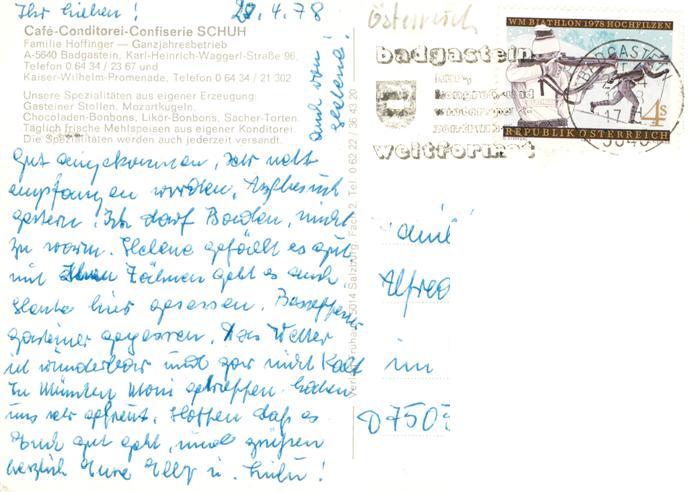 Ihr lieben! 20.4.78
Café-Conditorei-Confiserie SCHUH
Familie Hoffinger — Ganzjahresbetrieb
A-5640 Badgastein, Karl-Heinrich-Waggerl-Straße 96
Telefon 0 64 34 / 23 67 und
Kaiser-Wilhelm-Promenade, Telefon 0 64 34 / 21 302
Unsere Spezialitäten aus eigener Erzeugung:
Gasteiner Stollen, Mozartkugeln,
Chocoladen-Bonbons, Likör-Bonbons, Sacher-Torten.
Täglich frische Mehlspeisen aus eigener Konditorei.
Die Spezialitäten werden auch jederzeit versandt.
gut angekommen, sehr nett
empfangen worden, Arztbesuch
gestern. Ich darf Baden, nicht
zu warm. Helene gefällt es gut
mit Zähnen geht es auch
Heute hier gesessen.
gasteiner gegessen. Das Wetter
ist wunderbar und gar nicht Kalt
In München Moni getroffen. haben
uns sehr gefreut. Hoffen daß es
Euch gut geht, und grüßen
herzlich Eure Elly u.
auch von
Helene!
Tel. 0 62 22 / 36 43 20
5014 Salzburg, Fach 2
Österreich
badgastein
weltformat
WM BIATHLON 1978 HOCHFILZEN
4 S
REPUBLIK ÖSTERREICH
BADGASTEIN
5640
Alfred
im
D 750